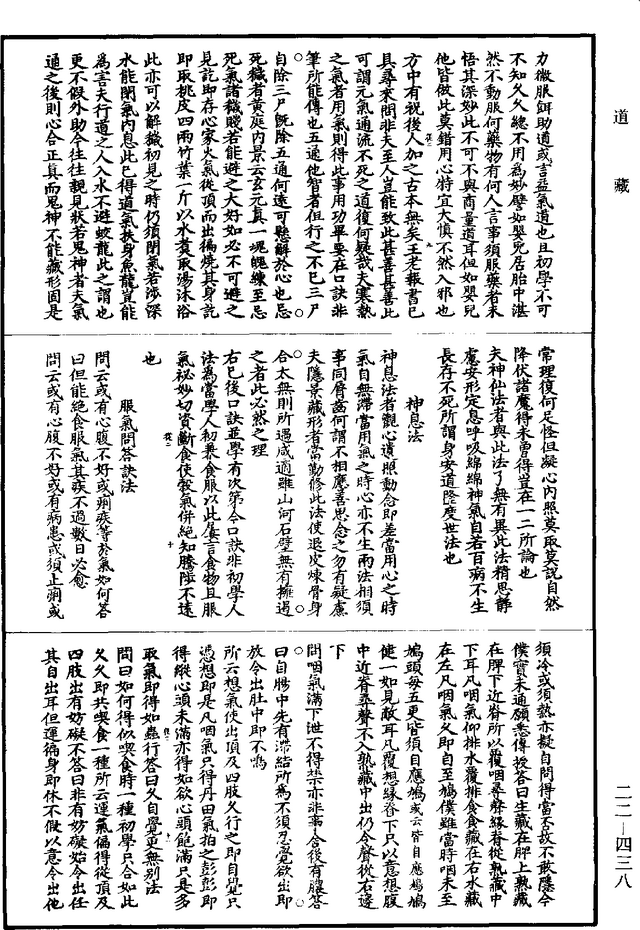 道藏
力微服餌助道或言益氣道也且初學不可
不知久久總不用為妙譬如嬰兒居胎中湛
然不動服何藥物有何人言事須服藥者未
悟其深妙此不可不與商量道耳但如嬰兒
他皆做此莫錯用心特宜大慎不然入邪也
方中有祝後人加之古本無矣王老報書已
具尋來問非夫至人豈能致此甚善甚善此
可謂元氣通流不死之道復何疑哉夫寒熱
之氣者用氣則得此事用功畢要在口訣非
筆所能傳也五通他智者但行之不已三尸
自除三尸既除五通何遠可懸解於心也忌
死穢者黃庭內景云玄元真一魂魄練至忌
死氣諸穢賤若能避之大好如必不可避之
見訖即存心家火氣從頂而出徧燒其身訖
即取桃皮四兩竹葉一斤以水煮取湯沐浴
此亦可以解穢初見之時仍須閉氣若涉深
水能閉氣內息此已得道氣扶身魚龍豈能
為害夫行道之人入水不避蛟龍此之謂也
更不假外助今往往親見狀若鬼神者夫氣
通之後則心合正真而鬼神不能藏形固是
常理復何足怪但凝心內照莫取莫說自然
降伏諸魔得未曾得豈在一二所論也
夫神仙法者與此法了無有異此法精思靜
慮安形定息呼吸綿綿神氣自若百病不生
長存不死所謂身安道隆度世法也
神息法
神息法者觀心遺照動念即差當用心之時
氣自無滯當用氣之時心亦不生兩法相須
事同脣齒何謂不相應善思念之勿有疑慮
夫隱景藏形者當勤修此法使退皮煉骨身
合太無則所遇咸適雖山河石壁無有擁遏
之者此必然之理
右已後口訣並學有次第今口訣非初學人
法為當學人初兼食服以此屢言食物且服
氣祕妙切資斷食使穀氣併絕知騰陟不遠
也
服氣問答訣法
問云或有心腹不好或痢疾等於氣如何答
曰但能絕食服氣其疾不過數日必愈
問云或有心腹不好或有病患或須止痢或
須冷或須熱亦擬自問得當否故不敢隱今
僕實未通願悉傳授答曰生藏在脾上熟藏
在脾下近脊所以覆咽尋脊緣脊從熟藏中
下耳凡咽氣仰排水覆排食食藏在右水藏
在左凡咽氣久即自至鳩僕雖當時咽未至
鳩頭每五更皆須自應鳩或云皆自應鳩鳩
健一如見敵耳凡覆想緣脊下只以意想腹
中近脊尋聲不入熟藏中出仍令聲從右邊
下
問咽氣滿下泄不得禁亦非事含後有膿答
曰自腸中先有滯結所為不須忍覺欲出即
放令出肚中即不鳴
所云想氣使出頂及四肢久行之即自覺只
憑想即是凡咽氣只得丹田氣拍之彭彭即
得縱心頭未滿亦得如欲心頭飽滿只是多
取氣即得如蟲行答曰久自覺更無別法
問曰如何得似喫食時一種初學只合如此
久久即共喫食一種所云運氣偏得從頂及
四肢出有妨礙不答曰非有妨礙始令出任
其自出耳但運徧身即休不假以意令出他
二二—四三八